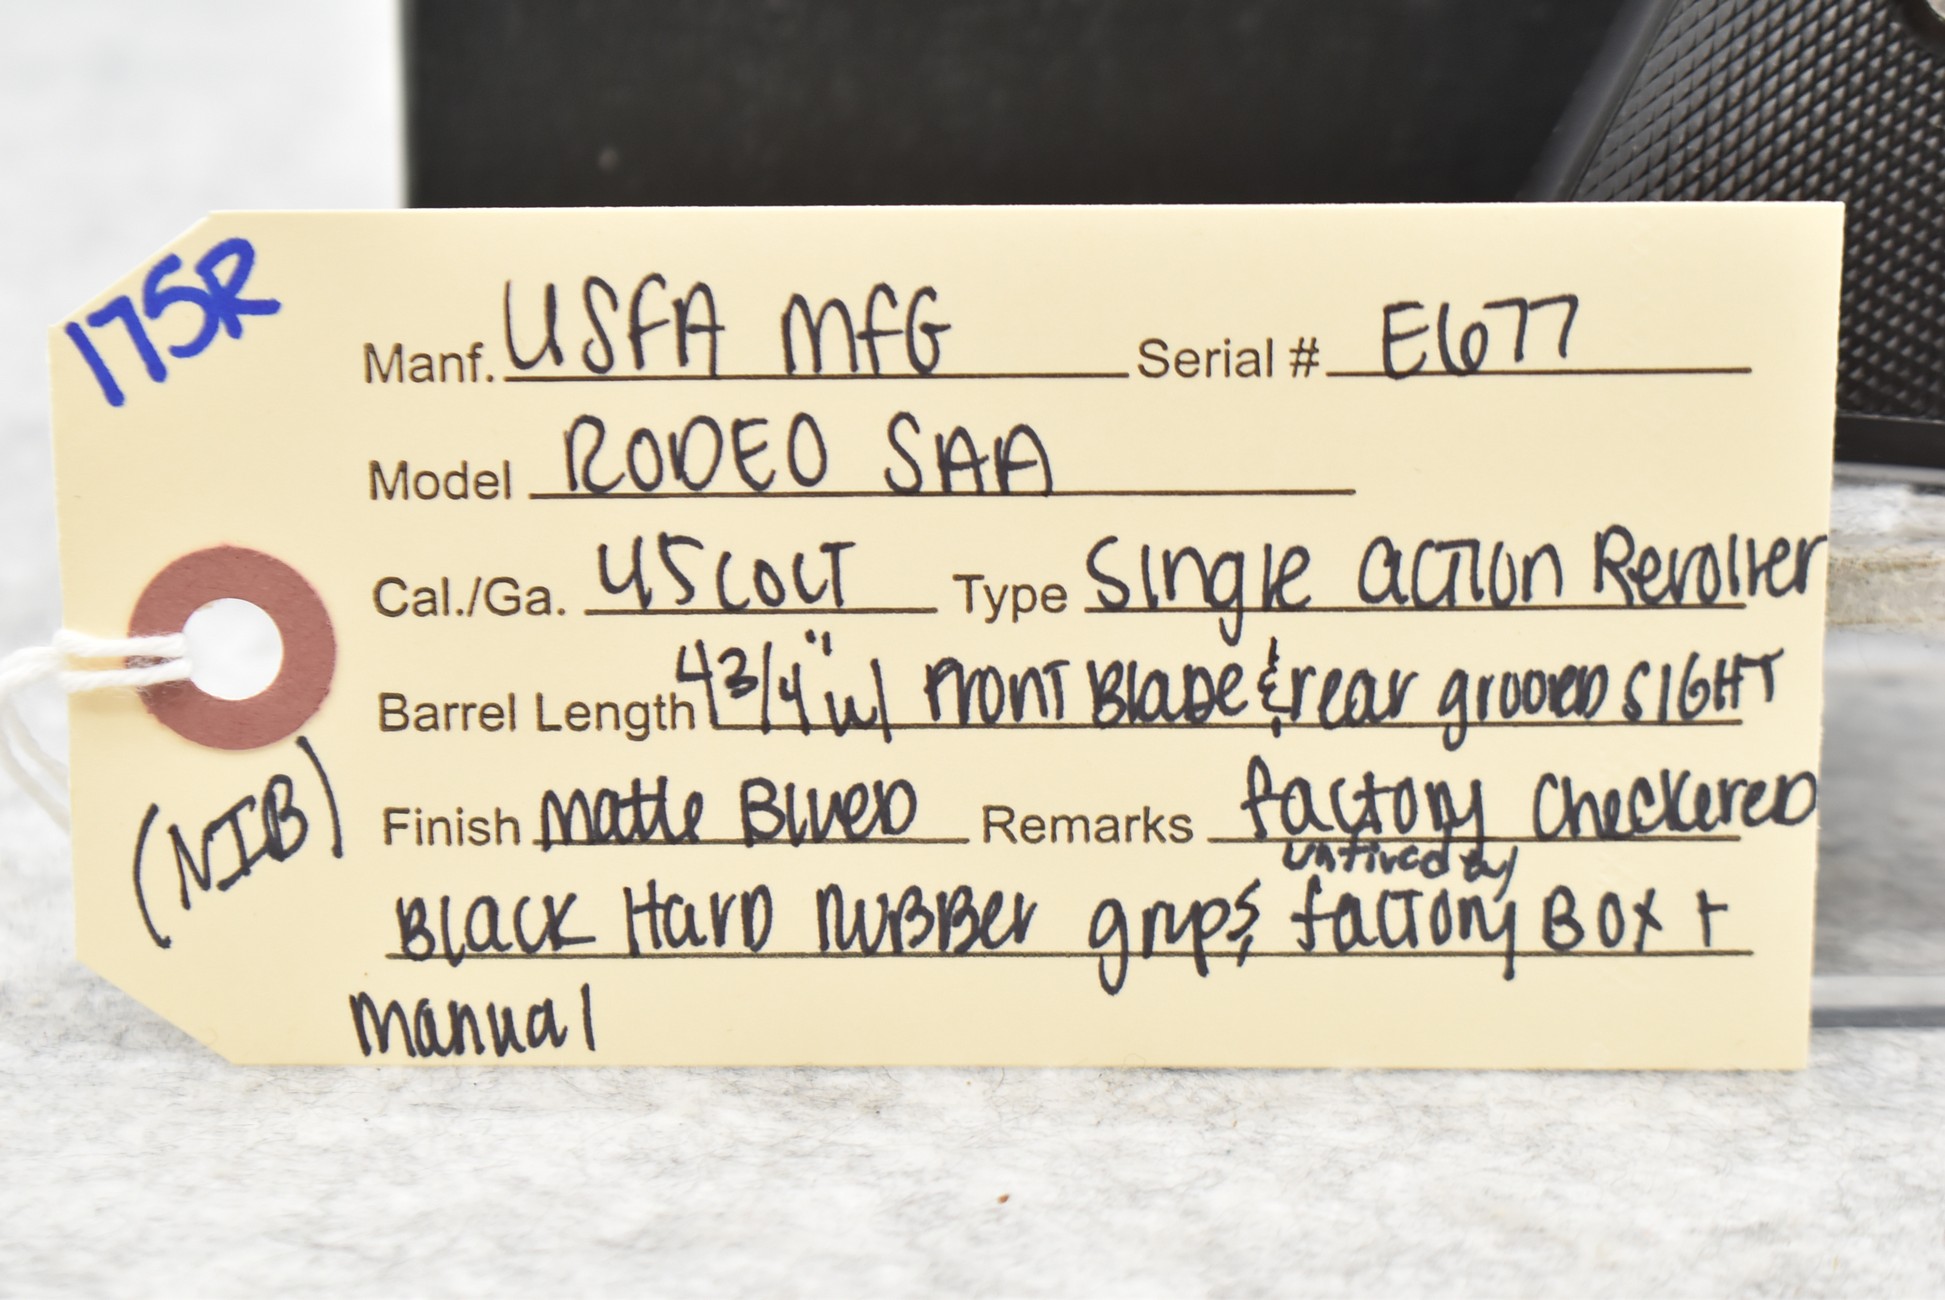 175R
Manf. USFA MFG Serial # E677
Model RODEO SAA
Cal./Ga. 45 COLT Type Single Action Revolver
Barrel Length 4 3/4" w/ Front Blade & rear grooved SIGHT
Finish Matte Blued Remarks factory checkered
unfired w/
Black Hard Rubber grips, factory Box +
manual
(NIB)